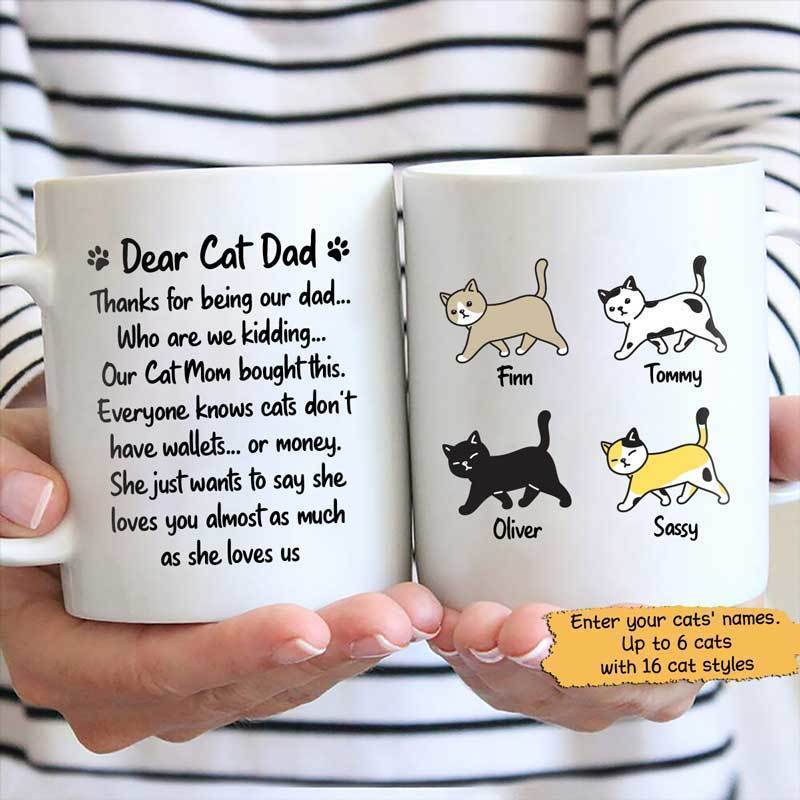 Dear Cat Dad
Thanks for being our dad...
Who are we kidding...
Our Cat Mom bought this.
Everyone knows cats don't
have wallets... or money.
She just wants to say she
loves you almost as much
as she loves us
Finn
Tommy
Oliver
Sassy
Enter your cats' names.
Up to 6 cats
with 16 cat styles